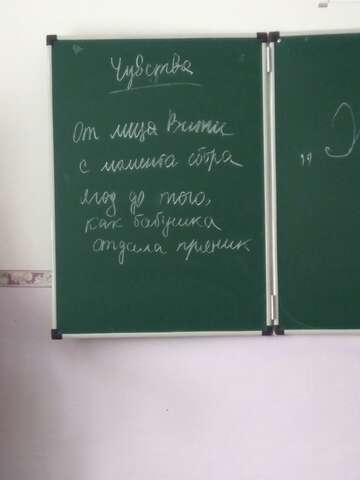 Чувства
От лица Витьки
с момента сбора
ягод до того,
как бабушка
отдала пряник